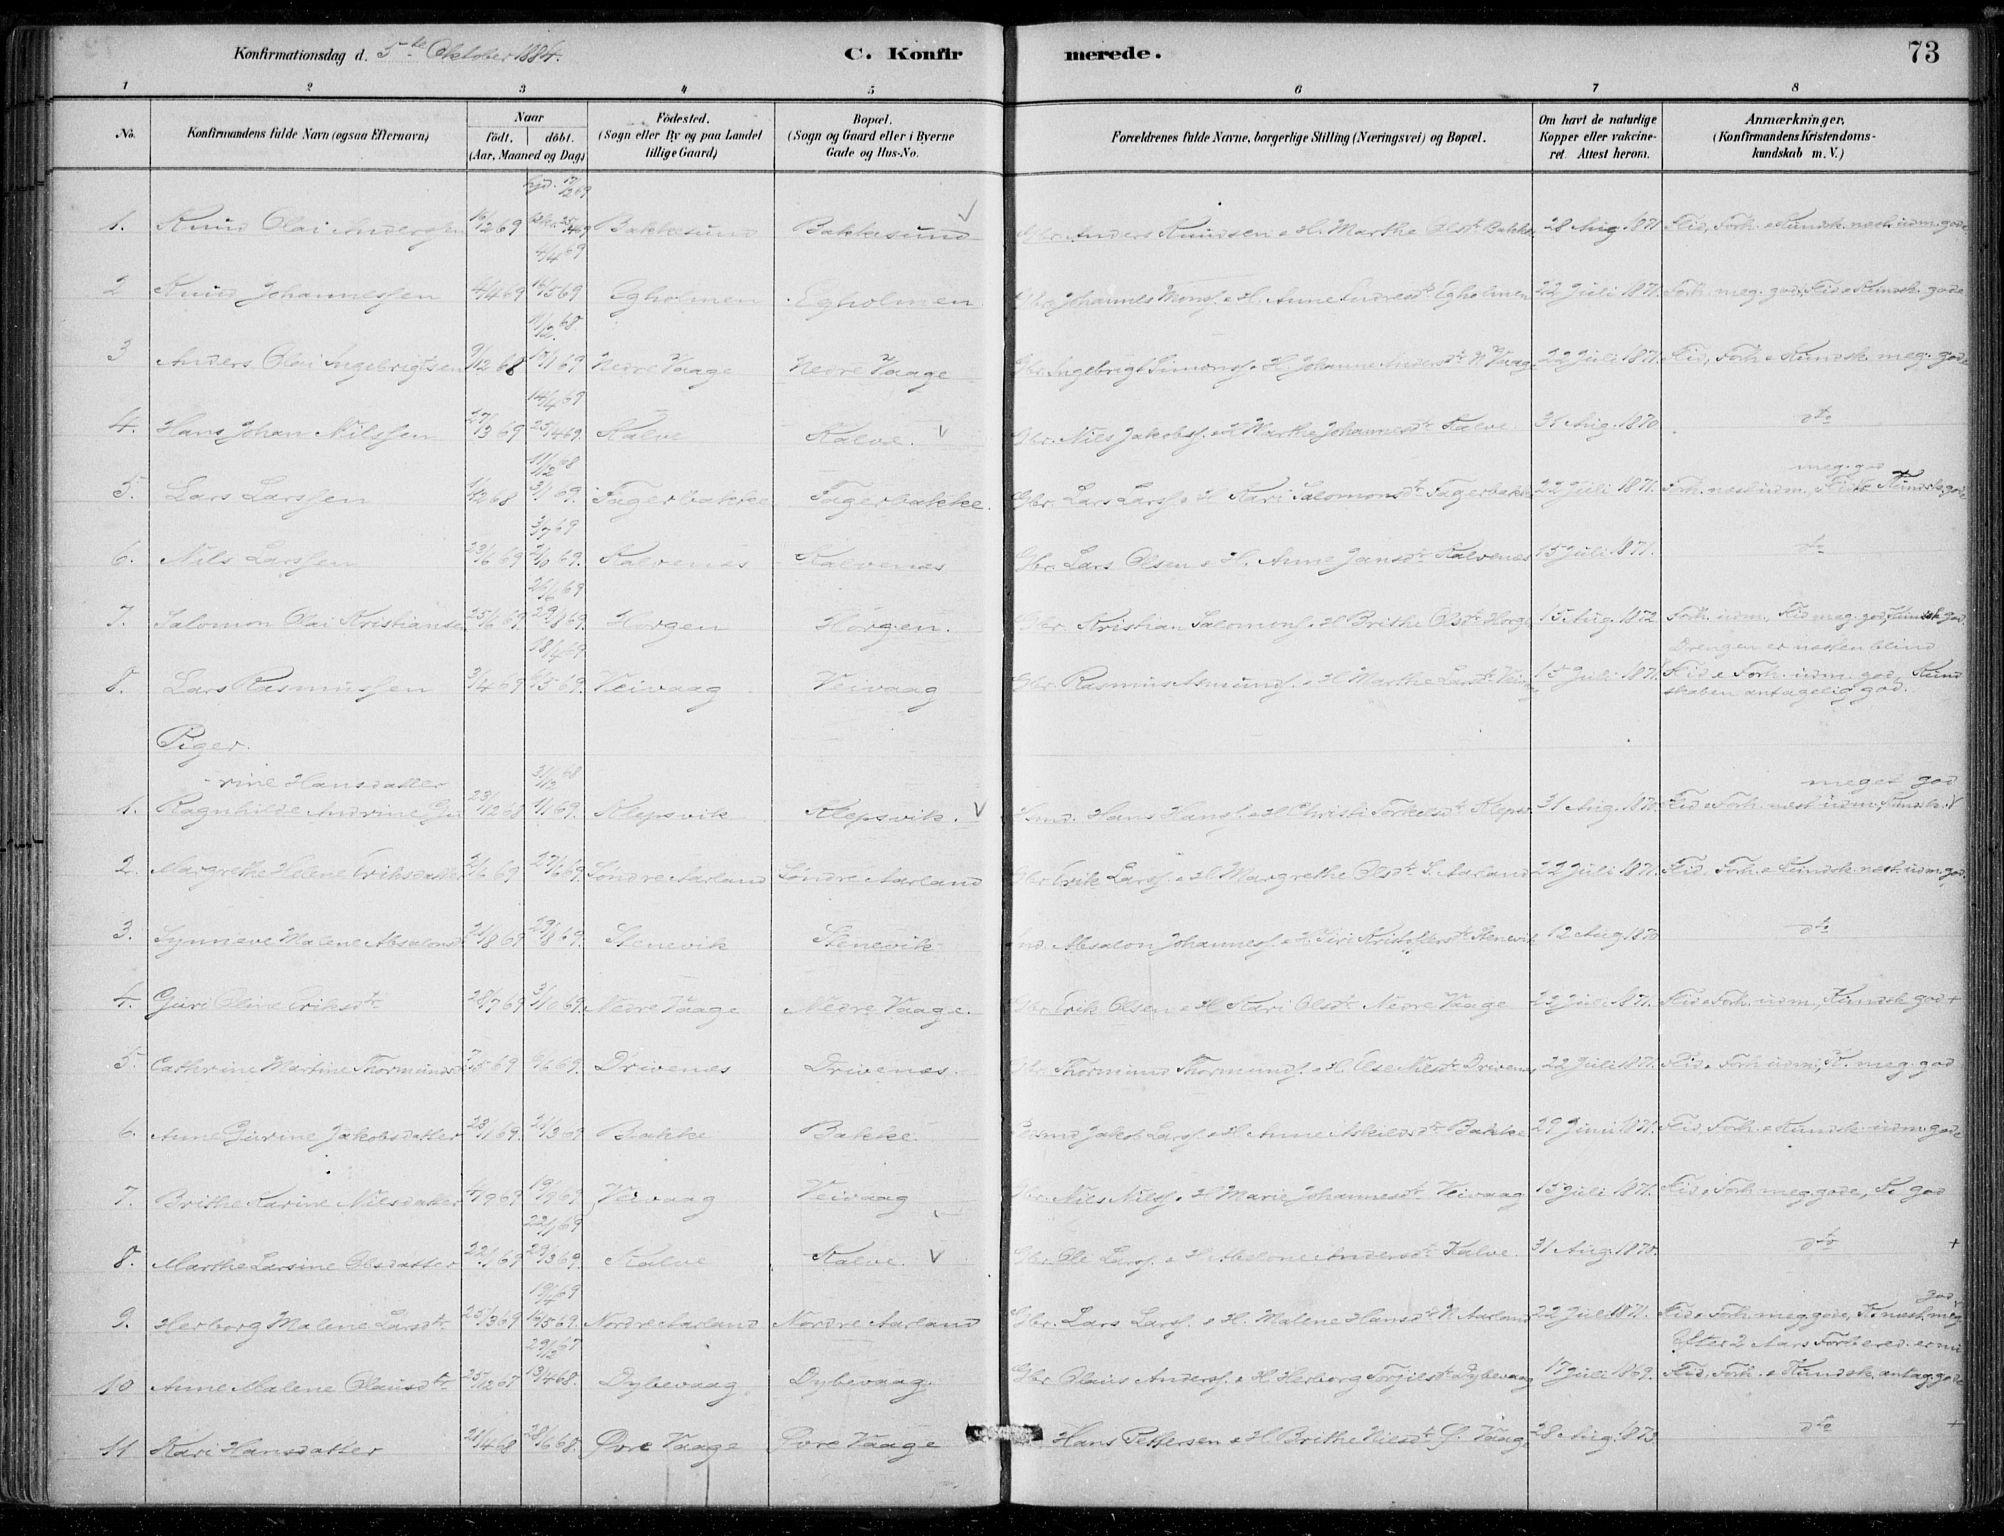 Konfirmationsdag d. 5te Oktober 1884.
C. Konfirmerede.
73
1 2 3 4 5 6 7 8
No.
Konfirmandens fulde Navn (ogsaa Efternavn)
Naar
født. døbt.
(Aar, Maaned og Dag)
Fødested.
(Sogn eller By og paa Landet
tillige Gaard)
Bopæl.
(Sogn og Gaard eller i Byerne
Gade og Hus-No.
Forældrenes fulde Navne, borgerlige Stilling (Næringsvei) og Bopæl.
Om havt de naturlige
Kopper eller vakcine-
ret. Attest herom.
Anmærkninger.
(Konfirmandens Kristendoms-
kundskab m. V.)
hjd. 17/2 69
1. Knud Olai Anderssen 16/2 69 Bakkesund Bakkesund Gbr. Anders Knudsen & H. Marthe Olsdtr Bakke 28 Aug 1871 Flid, Forh. & Kundsk. nest. udm. gode
4/4 69
2 Knud Johannessen 4/4 69 16/5 69 Egholmen Egholmen Gbr. Johannes Monss. & H. Anne Endresdtr Egholmen 22 Juli 1871 Forh. meg. god, Flid & Kundsk. gode
11/12 68
3 Anders Olai Ingebrigtsen 9/12 68 17/1 69 Nedre Vaage Nedre Vaage Gbr. Ingebrigt Simonss. & H. Johanne Andersdtr N. Vaage 22 Juli 1871. Flid, Forh. & Kundsk. meg. gode
14/4 69
4. Hans Johan Nilssen 27/3 69 25/4 69. Kalve Kalve. Gbr. Nils Jakobss. & H. Marthe Johannesdtr Kalve. 31 Aug. 1870. dto
11/12 68
meg. god
5. Lars Larssen 1/12 68 3/1 69. Fagerbakke Fagerbakke. Gbr. Lars Larss. & H. Kari Salomonsdtr Fagerbakke 22 Juli 1871. Forh. nest. udm., Flid & Kundsk. gode
3/7 69
6. Nils Larssen 23/6 69 Kalvenæs Kalvenæs Gbr. Lars Olsen & H. Anne Jansdtr Kalvenæs 15 Juli 1871. dto
26/6 69
7. Salomon Olai Kristiansen 25/6 69. 29/8 69. Horgen Horgen. Gbr. Kristian Salomonss. & H. Brithe Olsdtr Horge 15 Aug. 1872 Forh. udm., Flid meg. god, Kundsk. god.
18/4 69
Drengen er næsten blind
8. Lars Rasmussen 3/4 69 6/5 69. Veivaag Veivaag Gbr. Rasmus Asmundss. & H. Marthe Larsdtr Veivaag 15 Juli 1871. Flid & Forh. udm. god, Kund
skaben antagelig god.
Piger.
rine Hansdatter 31/12 68 meget god
1. Ragnhilde Andrine Gu 23/12 68 1/1 69. Klepsvik Klepsvik. Hmd. Hans Hanss. & H. Christi Torkelsdtr Klepsv. 31 Aug. 1870 Flid & Forh. nest udm., Kundsk.
2. Margrethe Helene Eriksdatter 2/6 69 27/6 69. Søndre Aarland Søndre Aarland Gbr. Erik Larss. & H. Margrethe Olsdtr S. Aarland 22 Juli 1871. Flid, Forh. & Kundsk. nest. udm. god.
3. Synnieve Malene Absalonsd 21/8 69 29/8 69. Stenevik Stenevik. Ind. Absalon Johanness. & H. Siri Kristofersdtr Stenevik 12 Aug 1870 dto
4. Guri Oline Eriksdtr 28/7 69 3/10 69. Nedre Vaage Nedre Vaage. Gbr. Erik Olsen & H. Kari Olsdtr Nedre Vaage 22 Juli 1871. Flid & Forh. udm., Kundsk. god +
5. Cathrine Martine Thormundsd 7/5 69 6/6 69. Drivenes Drivenæs. Gbr. Thormund Thormundss. & H. Else Nilsdtr Drivenes 22 Juli 1871. Flid & Forh. udm., K. meg. god
6. Anne Gurine Jakobsdatter 23/1 69. 21/3 69 Bakke Bakke. Jakob Larss. & H. Anne Askildsdtr Bakke 29 Juni 1871. Flid, Forh. & Kundsk. udm. gode
7. Brithe Karine Nilsdatter 4/9 69 19/9 69 Veivaag Veivaag Gbr. Nils Nilss. & H. Marie Johannesdtr Veivaag 15 Juli 1871. Flid & Forh. meg gode, K. god
22/1 69
8. Marthe Larsine Olsdatter 22/1 69 29/3 69. Kalve Kalve. Gbr. Ole Larss. & H. Abelone Andersdtr Kalve. 31 Aug. 1870. dto +
19/4 69
god
9. Herborg Malene Larsdtr 25/3 69 16/5 69. Nordre Aarland Nordre Aarland Gbr. Lars Larss. & H. Malene Hansdtr N. Aarland 22 Juli 1871. Flid & Forh. meg gode, K. nest. meg
29/12 67
Efter 2 Aars Forbered. er nu
10 Anne Malene Olausdtr 25/12 67 13/4 68. Dybevaag. Dybevaag. Gbr. Olaus Anderss. & H. Herborg Torjilsdtr Dybevaag 17 Juli 1869. Flid, Forh. & Kundsk. antag. gode
11 Kari Hansdatter 21/4 68 28/6 68. Øvre Vaage Øvre Vaage Hans Pettersen & H. Brithe Nilsdtr Ø. Vaage 28 Aug. 1873. dto +